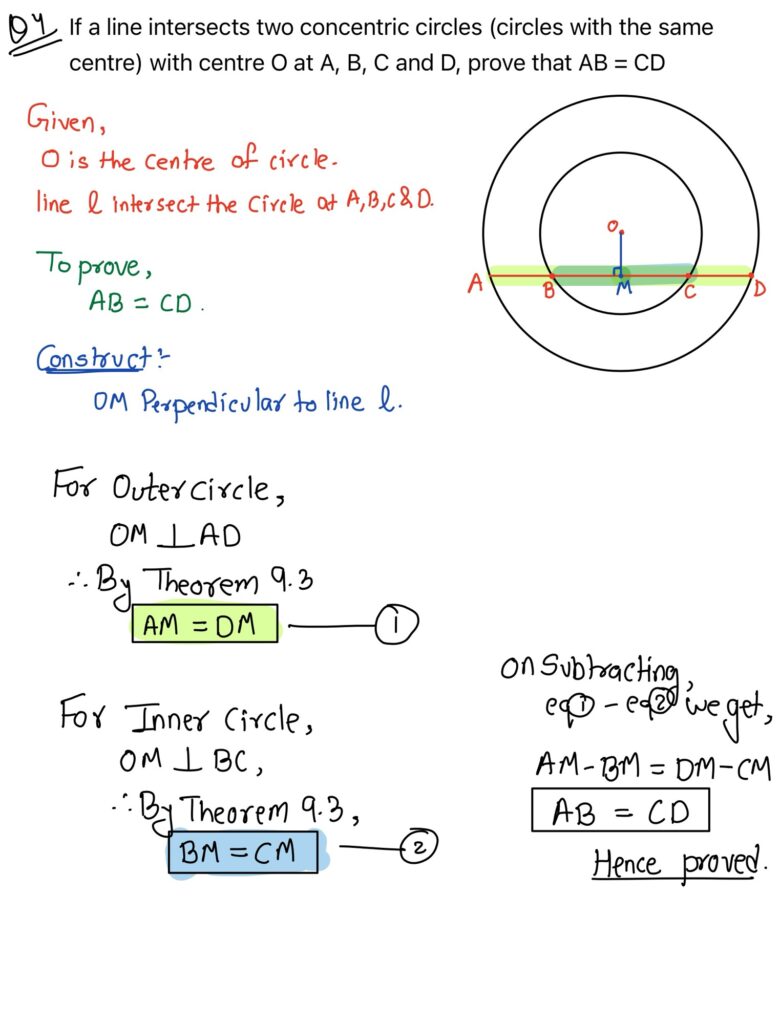 Q4 If a line intersects two concentric circles (circles with the same
centre) with centre O at A, B, C and D, prove that AB = CD
Given,
O is the centre of circle.
line l intersect the Circle at A,B,C & D.
To prove,
AB = CD.
Construct:-
OM Perpendicular to line l.
O
A
B
M
C
D
For Outer circle,
OM ⊥ AD
∴ By Theorem 9.3
AM = DM ——— ①
For Inner Circle,
OM ⊥ BC,
∴ By Theorem 9.3,
BM = CM —— ②
On Subtracting,
eq① - eq② we get,
AM - BM = DM - CM
AB = CD
Hence proved.